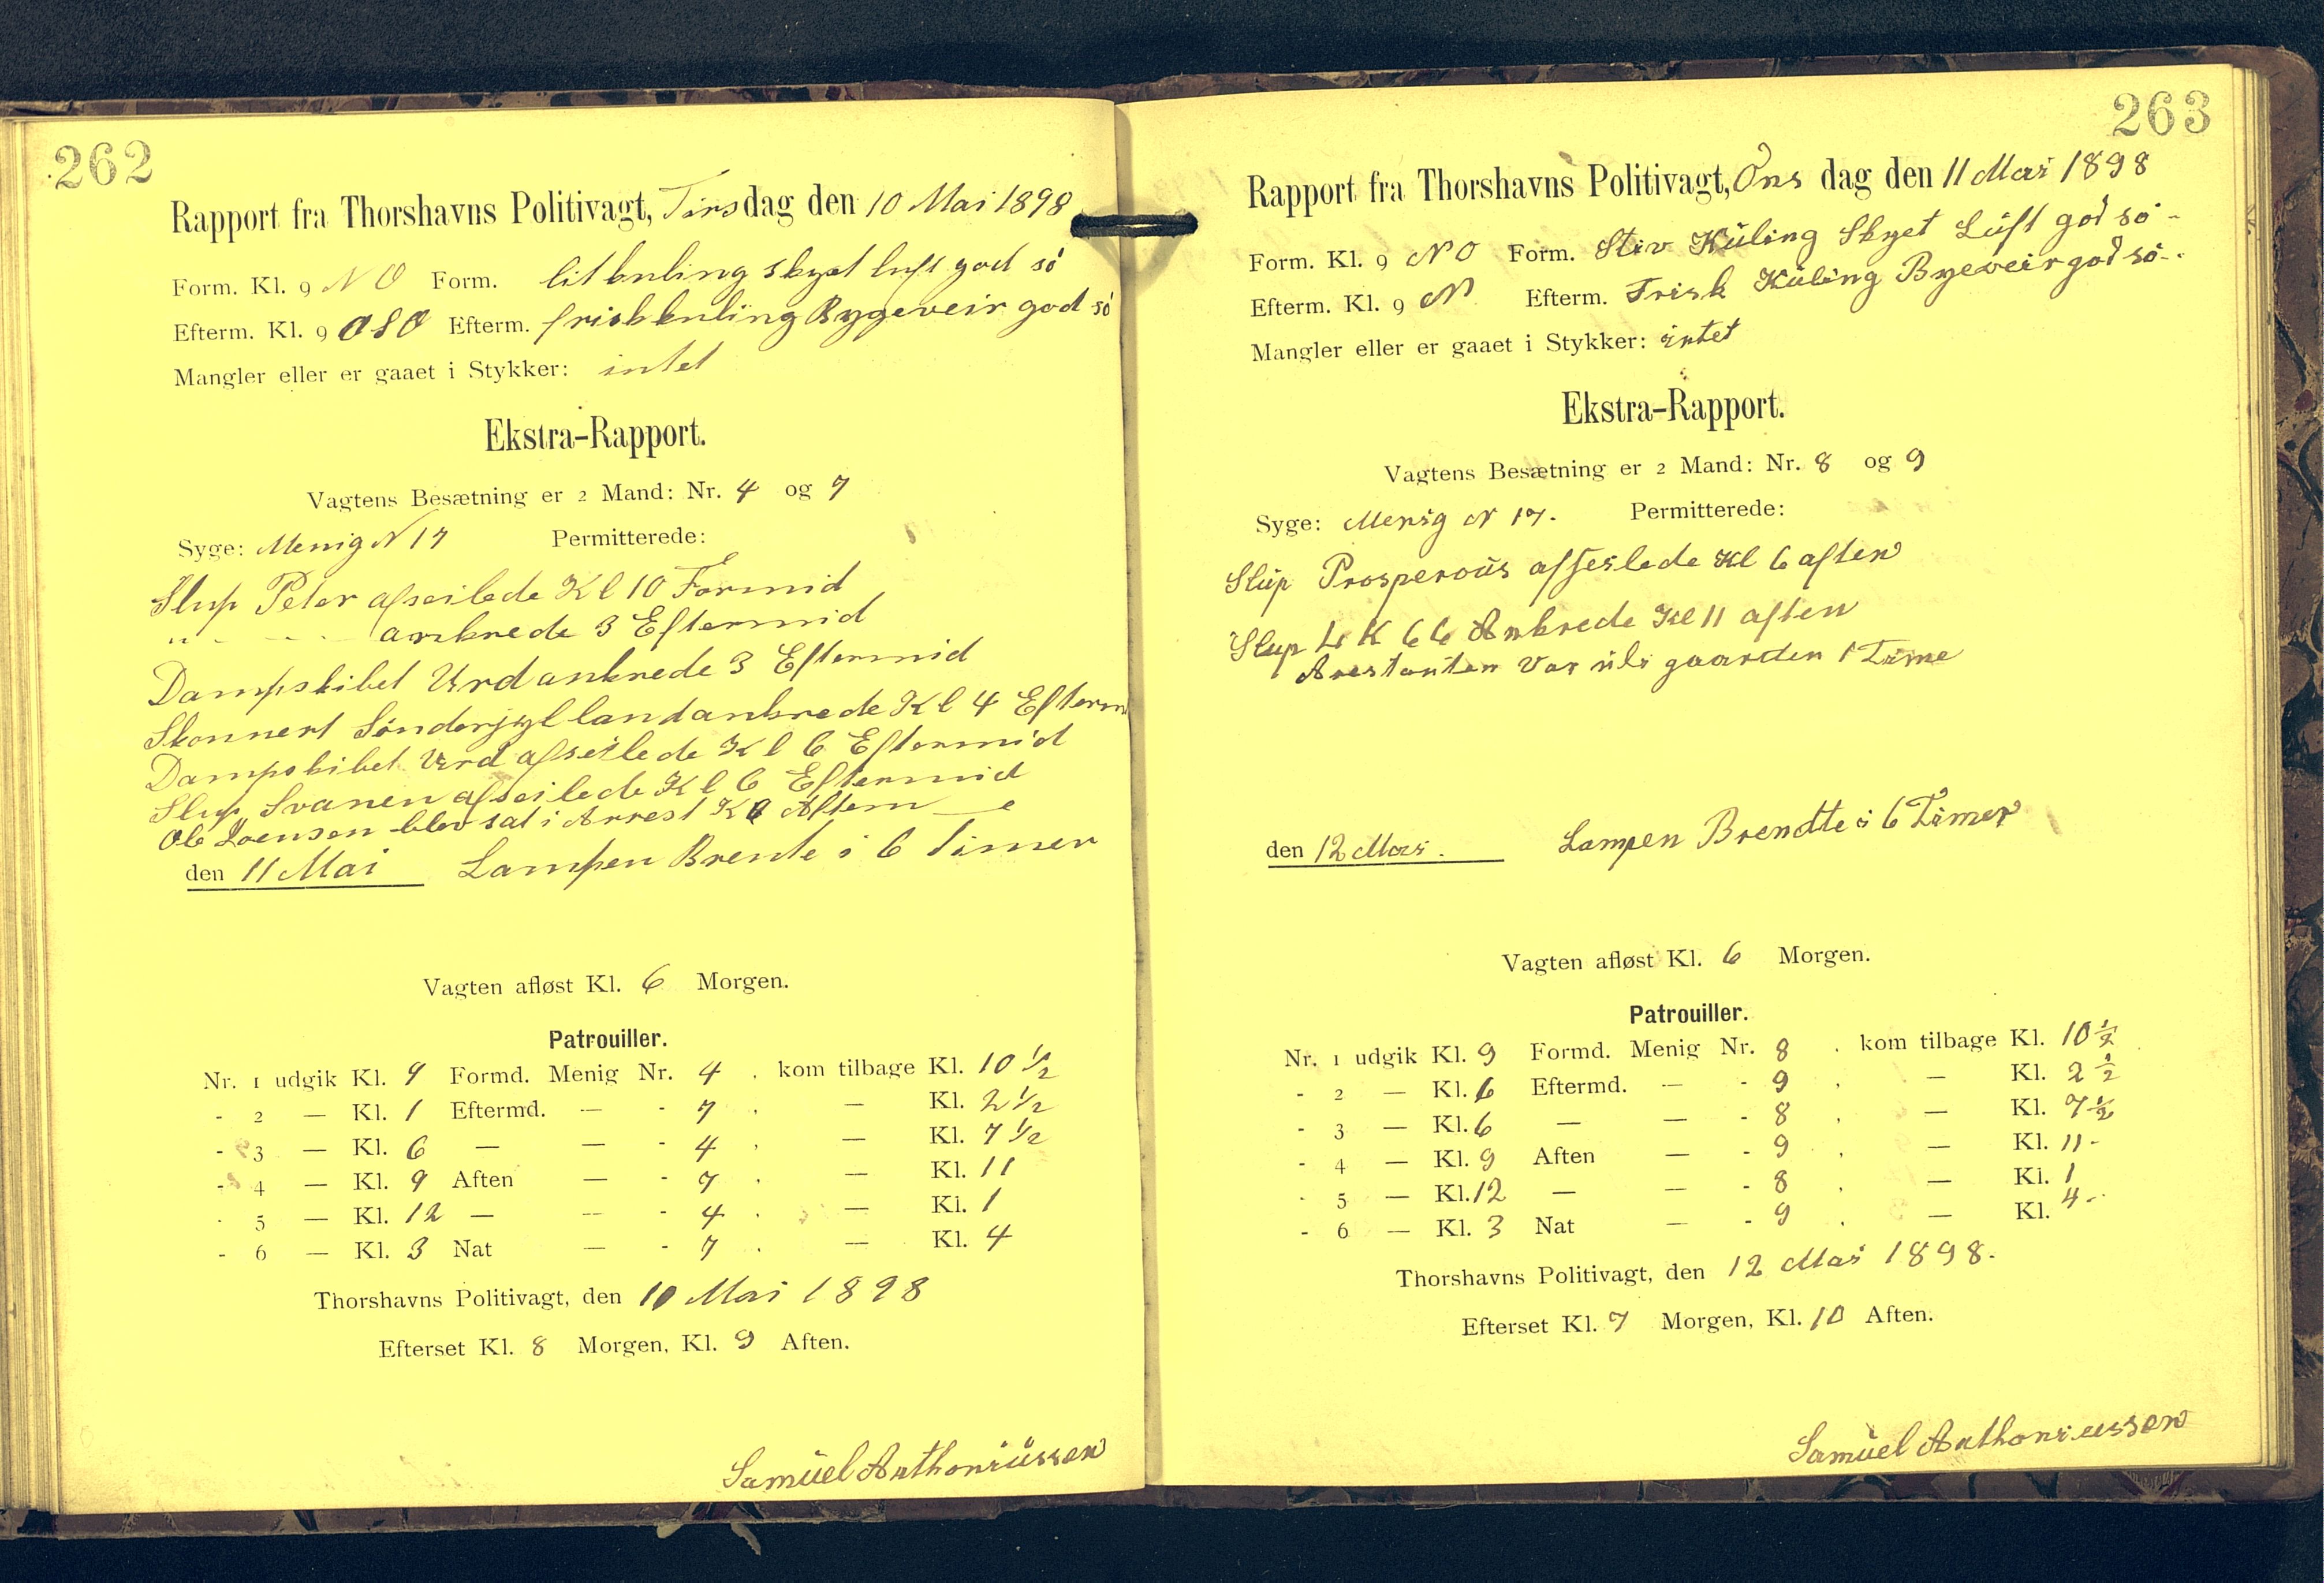 262
Rapport fra Thorshavns Politivagt, Tirsdag den 10 Mai 1898
Form. Kl. 9 NO Form. litkuling skyet luft god sö
Efterm. Kl. 9 OSO Efterm. friskkuling Bygeveir god sö
Mangler eller er gaaet i Stykker: intet
Ekstra-Rapport.
Vagtens Besætning er 2 Mand: Nr. 4 og 7
Syge: Menig N 17 Permitterede:
Slup Peter afseilede Kl 10 Formid
" - - - ankrede 3 Eftermid
Dampskibet Urd ankrede 3 Eftermid
Skonnert Sönderjylland ankrede Kl 4 Efterm
Dampskibet Urd afseilede Kl 6 Eftermid
Slup Svanen afseilede Kl 6 Eftermid
Ole blev sat i Arrest
den 11 Mai Lampen Brente i 6 Timer
Vagten afløst Kl. 6 Morgen.
Patrouiller.
Nr. 1 udgik Kl. 9 Formd. Menig Nr. 4 . kom tilbage Kl. 10 ½
- 2 — Kl. 1 Eftermd. — - 7 . — Kl. 2 ½
- 3 — Kl. 6 — — - 4 . — Kl. 7 ½
- 4 — Kl. 9 Aften — - 7 . — Kl. 11
- 5 — Kl. 12 — — - 4 . — Kl. 1
- 6 — Kl. 3 Nat — - 7 . — Kl. 4
Thorshavns Politivagt, den 10 Mai 1898
Efterset Kl. 8 Morgen, Kl. 9 Aften.
Samüel Anthoniüssen
263
Rapport fra Thorshavns Politivagt, Ons dag den 11 Mai 1898
Form. Kl. 9 NO Form. Stiv Küling Skyet Lüft god sö -
Efterm. Kl. 9 N Efterm. Frisk Küling Byeveir god sö -
Mangler eller er gaaet i Stykker: intet
Ekstra-Rapport.
Vagtens Besætning er 2 Mand: Nr. 8 og 9
Syge: Menig N 17. Permitterede:
Slüp Prosperoüs afseilede Kl 6 aften
Slup 66 Ankrede Kl 11 aften
Arestanten Var üdi gaarden 1 Time
den 12 Mai. Lampen Brendte i 6 Timer
Vagten afløst Kl. 6 Morgen.
Patrouiller.
Nr. 1 udgik Kl. 9 Formd. Menig Nr. 8 . kom tilbage Kl. 10 ½
- 2 — Kl. 6 Eftermd. — - 9 . — Kl. 2 ½
- 3 — Kl. 6 — — - 8 . — Kl. 7 ½
- 4 — Kl. 9 Aften — - 9 . — Kl. 11 -
- 5 — Kl. 12 — — - 8 . — Kl. 1
- 6 — Kl. 3 Nat — - 9 . — Kl. 4 -
Thorshavns Politivagt, den 12 Mai 1898.
Efterset Kl. 7 Morgen, Kl. 10 Aften.
Samüel Anthoniussen